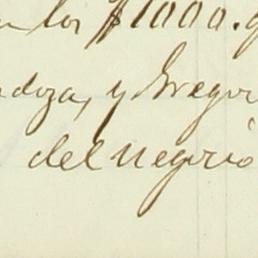 los $1000.
doza, y Gregor
del negocio